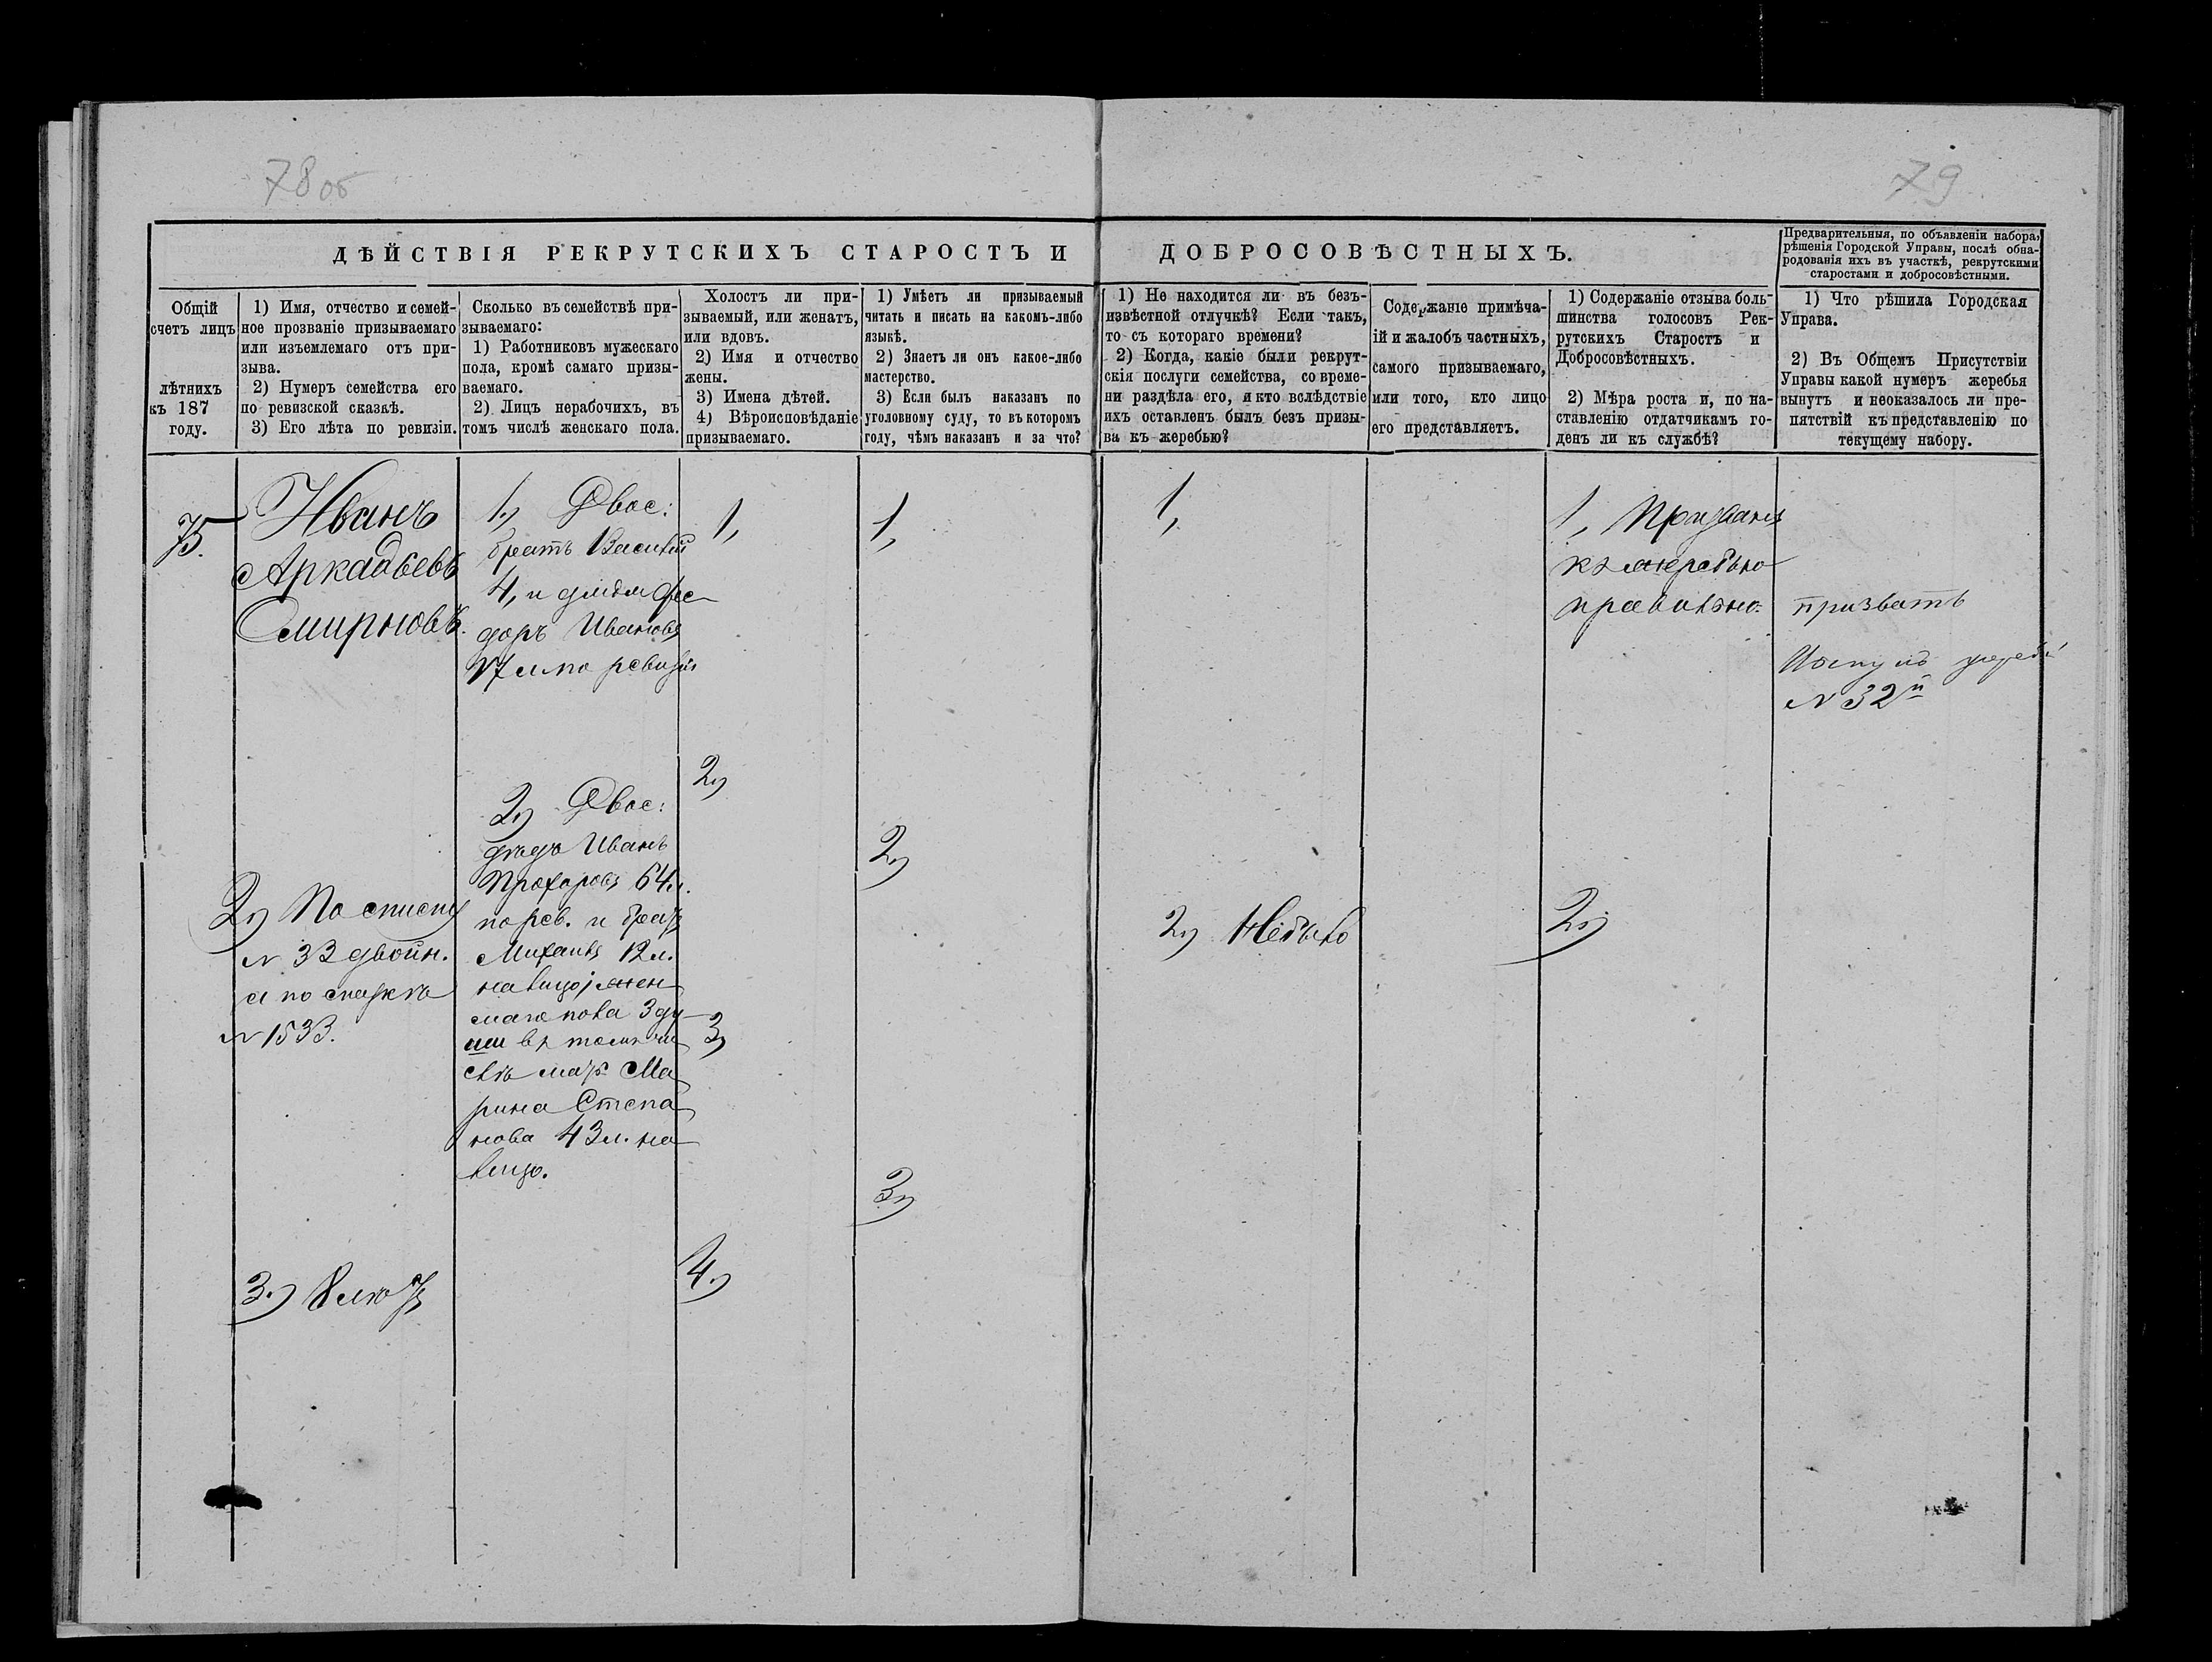 78 об
79
ДѢЙСТВІЯ РЕКРУТСКИХЪ СТАРОСТЪ И ДОБРОСОВѢСТНЫХЪ.
Предварительныя, по объявленіи набора,
рѣшенія Городской Управы, послѣ обна-
родованія ихъ въ участкѣ, рекрутскими
старостами и добросовѣстными.
Общій
счетъ лицъ
лѣтнихъ
къ 187
году.
1) Имя, отчество и семей-
ное прозваніе призываемаго
или изъемлемаго отъ при-
зыва.
2) Нумеръ семейства его
по ревизской сказкѣ.
3) Его лѣта по ревизіи.
Сколько въ семействѣ при-
зываемаго:
1) Работниковъ мужескаго
пола, кромѣ самаго призы-
ваемаго.
2) Лицъ нерабочихъ, въ
томъ числѣ женскаго пола.
Холостъ ли при-
зываемый, или женатъ,
или вдовъ.
2) Имя и отчество
жены.
3) Имена дѣтей.
4) Вѣроисповѣданіе
призываемаго.
1) Умѣетъ ли призываемый
читать и писать на какомъ-либо
языкѣ.
2) Знаетъ ли онъ какое-либо
мастерство.
3) Если былъ наказанъ по
уголовному суду, то въ которомъ
году, чѣмъ наказанъ и за что?
1) Не находится ли въ безъ-
извѣстной отлучкѣ? Если такъ,
то съ котораго времени?
2) Когда, какіе были рекрут-
скія послуги семейства, со време-
ни раздѣла его, и кто вслѣдствіе
ихъ оставленъ былъ безъ призы-
ва къ жеребью?
Содержаніе примѣча-
ій и жалобъ частныхъ,
самого призываемаго,
или того, кто лицо
его представляетъ.
1) Содержаніе отзыва боль-
шинства голосовъ Рек-
рутскихъ Старостъ и
Добросовѣстныхъ.
2) Мѣра роста и, по на-
ставленію отдатчикамъ го-
денъ ли къ службѣ?
1) Что рѣшила Городская
Управа.
2) Въ Общемъ Присутствіи
Управы какой нумеръ жеребья
вынутъ и неоказалось ли пре-
пятствій къ представленію по
текущему набору.
75.
Иванъ
Аркадьевъ
Смирновъ.
2) По списку
№ 33 двойн.
а по сказкѣ
№ 1533.
3.) 8 лѣтъ
1.) Двое:
братъ Василій
4, и дядя Фе-
доръ Ивановъ
17 л. по ревизіи
2.) Двое:
дѣдъ Иванъ
Прохоровъ 64 л.
по рев. и братъ
Михаилъ 12 л.
на лицо; жен
скаго пола 3 ду-
ши въ томъ чи
слѣ мать Ма
рина Степа
нова 43 л. на
лицо.
1,
2.)
3)
4.)
1,
2.)
3.)
1,
2.) Небыло
1, Призванъ
къ жеребью
правильно.
2.)
призвать
Вынулъ жребій
№ 32й